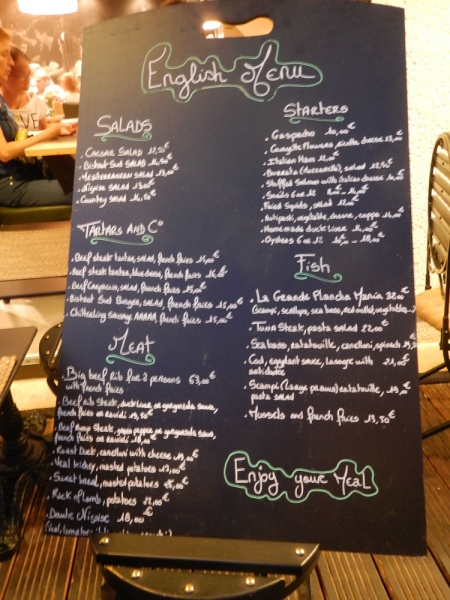 English Menu
SALADS
. CAESAR SALAD
. Bistrot Sud SALAD
. Mediterranean salad 13,00€
. Niçoise SALAD 13,00€
. Country salad 14,50€
TARTARS AND C°
. Beef steak tartar, salad, french fries 15,00€
. Beef steak tartar, blue cheese, french fries
. Beef Carpaccio, salad, french fries 15,00€
. Bistrot Sud Burger, salad, french fries 15,00€
. Chitterling sausage AAAAA, french fries 15,00€
MEAT
. Big beef Rib for 2 persons 63,00€
with french fries
. Beef rib steak, duck liver or gorgonzola sauce,
french fries or ravioli 19,50€
. Beef rump steak, pepper or gorgonzola sauce,
french fries or ravioli
. Roast Duck, canelloni with cheese
. Veal kidney, roasted potatoes
. Sweet bread, roasted potatoes
. Rack of lamb, potatoes 22,00€
. Daube Niçoise 18,00€
STARTERS
. Gaspacho 10,00€
. Courgette Flowers, ricotta cheese 13,00€
. Italian Ham
. Burrata (Mozzarella), salad 12,50€
. Stuffed Salmon with Italian cheese
. Snails 6 or 12
. Fried Squids, salad 12,00€
. Antipasti, vegetable, cheese, coppa 14,00€
. Homemade duck liver
. Oysters 6 or 12 10,00 - 18,00€
Fish
. La Grande Plancha Mania 32,00€
(scampi, scallops, sea bass, red mullet, vegetables)
. Tuna Steak, pasta salad 22,00€
. Sea bass, ratatouille, canelloni, spinach
. Cod, eggplant sauce, lasagne with 21,00€
artichoke
. Scampi (Large prawns) ratatouille, 19,00€
pasta salad
. Mussels and french fries 13,50€
Enjoy your Meal